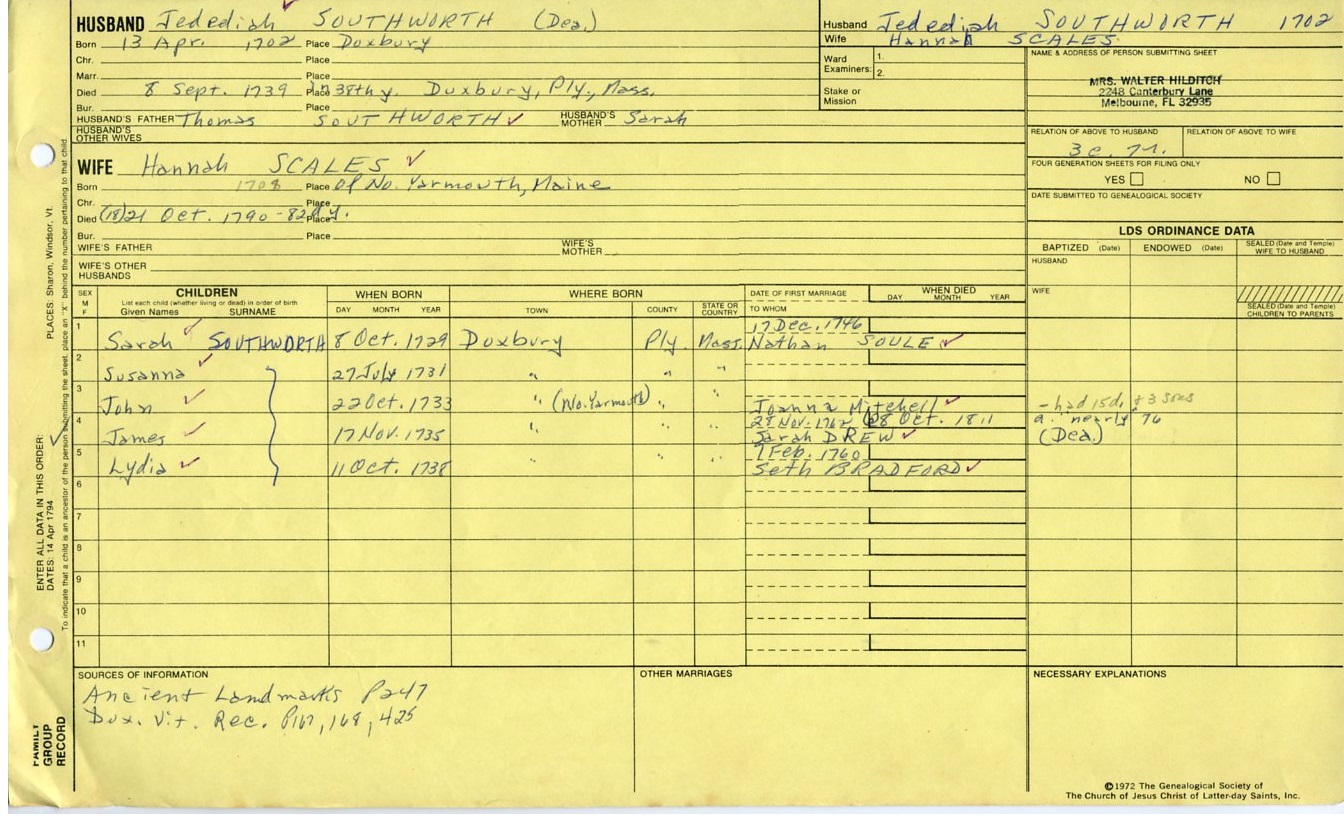 HUSBAND Jedediah SOUTHWORTH (Dea.)
Born 13 Apr. 1702 Place Duxbury
Chr. Place
Marr. Place
Died 8 Sept. 1739 Place in 38th y. Duxbury, Ply., Mass.
Bur. Place
HUSBAND'S FATHER Thomas SOUTHWORTH HUSBAND'S MOTHER Sarah
HUSBAND'S OTHER WIVES
Husband Jedediah SOUTHWORTH 1702
Wife Hannah SCALES
Ward Examiners: 1. 2.
Stake or Mission
NAME & ADDRESS OF PERSON SUBMITTING SHEET
MRS. WALTER HILDITCH
2248 Canterbury Lane
Melbourne, FL 32935
RELATION OF ABOVE TO HUSBAND RELATION OF ABOVE TO WIFE
FOUR GENERATION SHEETS FOR FILING ONLY
YES NO
DATE SUBMITTED TO GENEALOGICAL SOCIETY
WIFE Hannah SCALES
Born 1708 Place Of No. Yarmouth, Maine
Chr. Place
Died (18)21 Oct. 1790 - 82d y. Place
Bur. Place
WIFE'S FATHER WIFE'S MOTHER
WIFE'S OTHER HUSBANDS
LDS ORDINANCE DATA
BAPTIZED (Date) ENDOWED (Date) SEALED (Date and Temple) WIFE TO HUSBAND
HUSBAND
WIFE
SEALED (Date and Temple) CHILDREN TO PARENTS
SEX M F CHILDREN List each child (whether living or dead) in order of birth Given Names SURNAME WHEN BORN DAY MONTH YEAR WHERE BORN TOWN COUNTY STATE OR COUNTRY DATE OF FIRST MARRIAGE TO WHOM WHEN DIED DAY MONTH YEAR
17 Dec. 1746
1 Sarah SOUTHWORTH 8 Oct. 1729 Duxbury Ply. Mass. Nathan SOULE
2 Susanna 27 July 1731 " " "
3 John 22 Oct. 1733 " (No. Yarmouth) " " Joanna Mitchell - had 15d, & 3 sons
28 Nov. 1762 28 Oct. 1811 a. nearly 76
4 James 17 Nov. 1735 " " " Sarah DREW (Dea.)
7 Feb. 1760
5 Lydia 11 Oct. 1738 " " " Seth BRADFORD
6
7
8
9
10
11
SOURCES OF INFORMATION
Ancient Landmarks P247
Dux. Vit. Rec. P167, 168, 425
OTHER MARRIAGES
NECESSARY EXPLANATIONS
©1972 The Genealogical Society of
The Church of Jesus Christ of Latter-day Saints, Inc.
ENTER ALL DATA IN THIS ORDER:
DATES: 14 Apr 1794
PLACES: Sharon, Windsor, Vt.
To indicate that a child is an ancestor of the person submitting the sheet, place an "X" behind the number pertaining to that child.
FAMILY
GROUP
RECORD